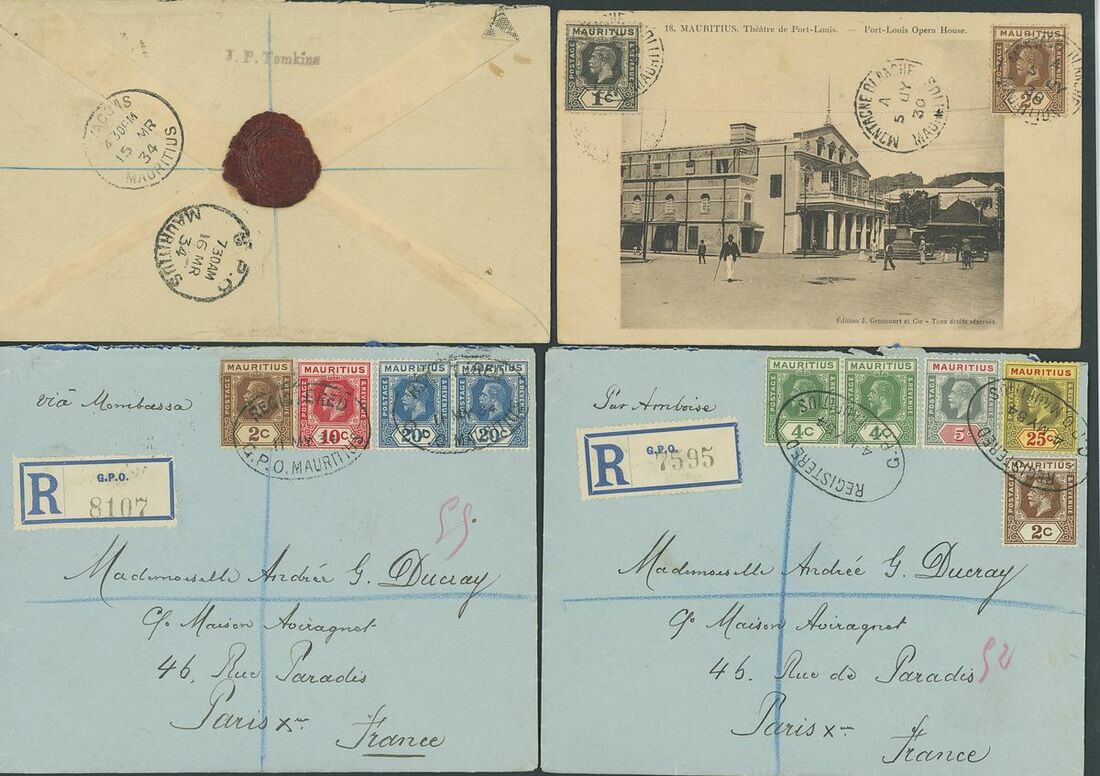 J. P. Tomkins
4.30PM
15 MR
34
MAURITIUS
730AM
16 MR
34
MAURITIUS
18. MAURITIUS. Théâtre de Port-Louis. — Port-Louis Opera House.
MAURITIUS
POSTAGE
& REVENUE
1c
MAURITIUS
POSTAGE
& REVENUE
2c
MONTAGNE BLANCHE
A
5 JY
30
MAURITIUS
Édition J. Grancourt et Cie - Tous droits réservés.
viâ Mombassa
MAURITIUS
POSTAGE
& REVENUE
2c
MAURITIUS
POSTAGE
& REVENUE
10c
MAURITIUS
POSTAGE
& REVENUE
20c
MAURITIUS
POSTAGE
& REVENUE
20c
REGISTERED
G.P.O. MAURITIUS
R
G.P.O.
8107
Mademoiselle Andrée G. Ducray
c/o Maison Aviragnet
46, Rue Paradis
Paris Xme
France
Par Amboise
MAURITIUS
POSTAGE
& REVENUE
4c
MAURITIUS
POSTAGE
& REVENUE
4c
MAURITIUS
POSTAGE
& REVENUE
5c
MAURITIUS
POSTAGE
& REVENUE
25c
MAURITIUS
POSTAGE
& REVENUE
2c
REGISTERED
G.P.O.
REGISTERED
R
G.P.O.
7595
Mademoiselle Andrée G. Ducray
c/o Maison Aviragnet
46, Rue de Paradis
Paris Xme
France